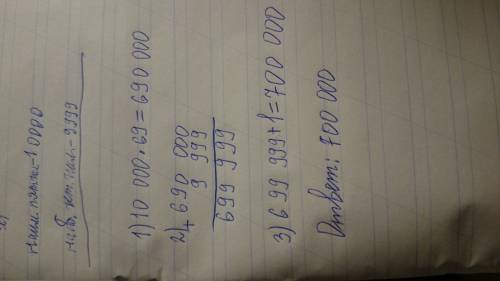 наим. пятизн. - 10000
наиб. чет. числ. - 9999
1) 10 000 · 69 = 690 000
2) + 690 000
9 999
699 999
3) 699 999 + 1 = 700 000
Ответ: 700 000